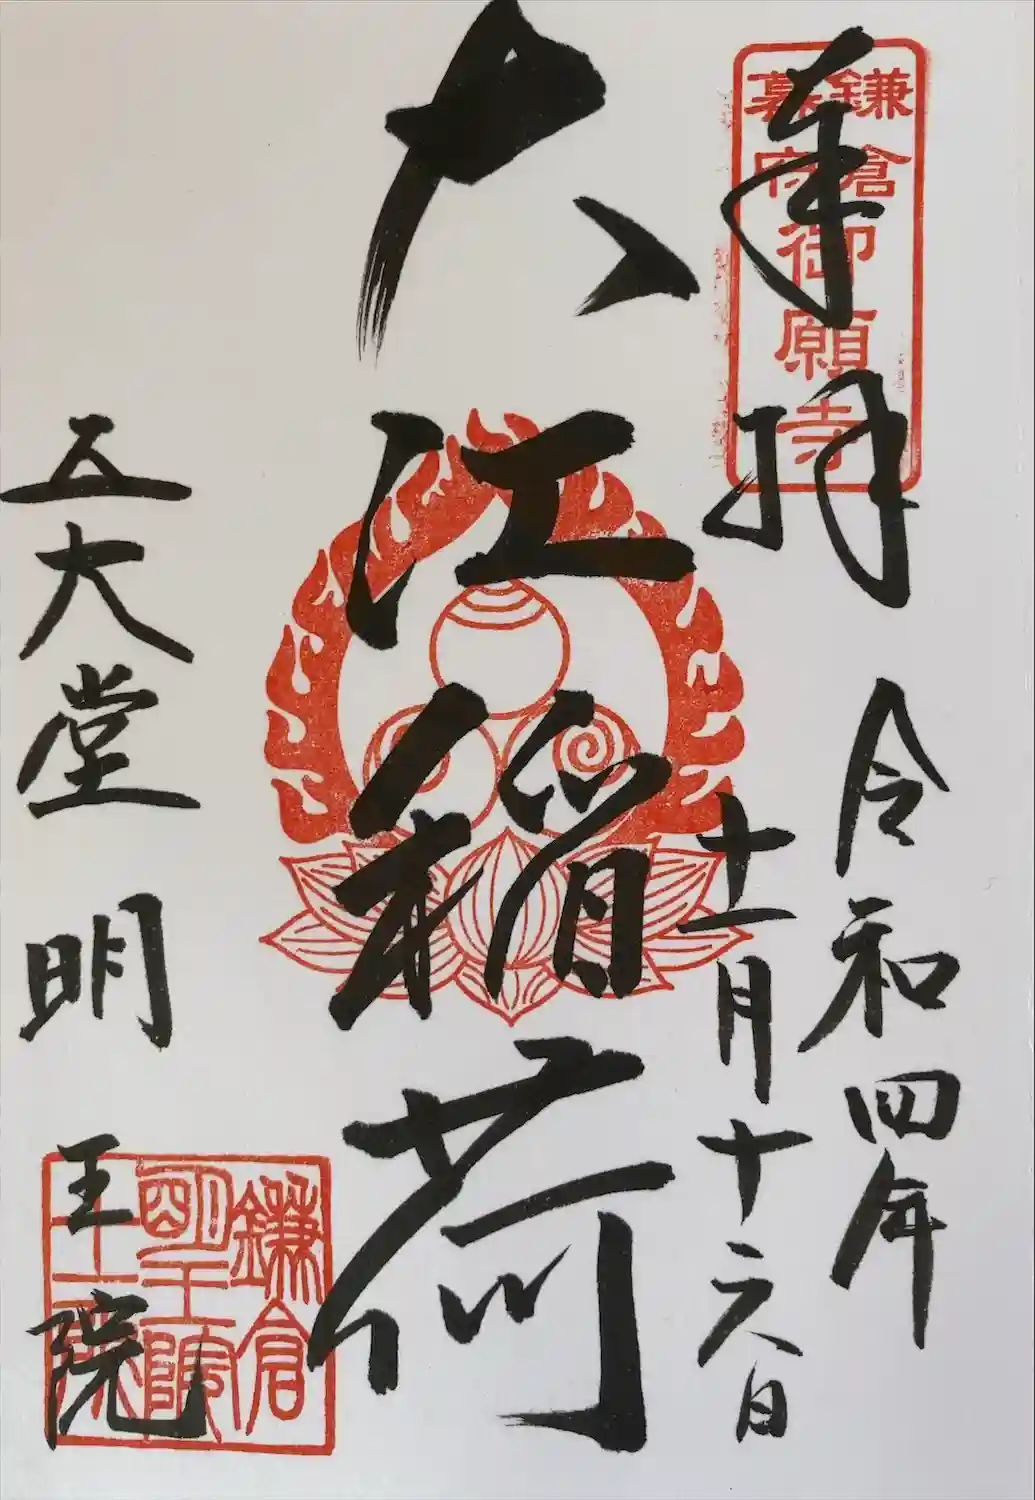 奉拝
鎌倉
幕府
御願寺
令和四年
十二月十六日
大江稲荷
五大堂 明王院
鎌倉
明王院